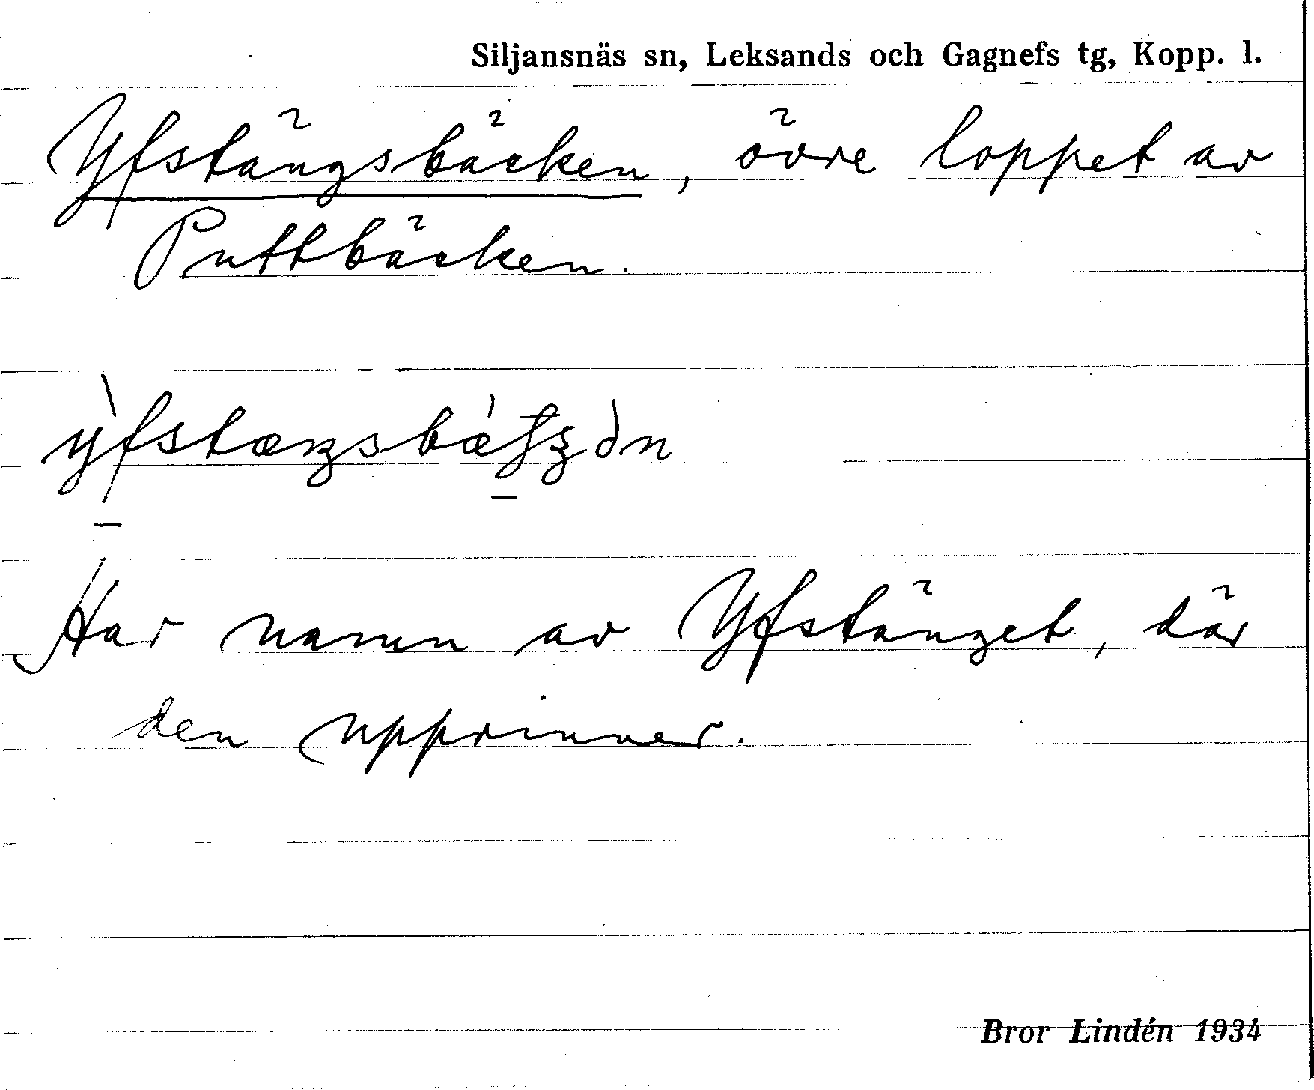 Siljansnäs sn, Leksands och Gagnefs tg, Kopp. l.
Yfstängsbäcken, övre loppet av
Puttbäcken.
Har namn av Yfstänget, där
den upprinner.
Bror Lindén 1934